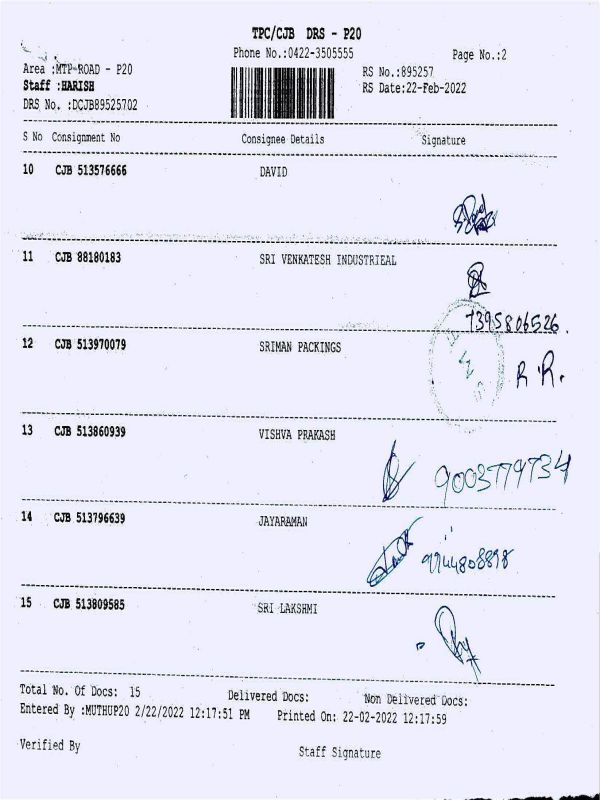 TPC/CJB DRS - P20
Phone No.:0422-3505555
Page No.:2
Area :MTP-ROAD - P20
RS No.:895257
Staff :HARISH
RS Date:22-Feb-2022
DRS No. :DCJB89525702
S No Consignment No Consignee Details Signature
10 CJB 513576666 DAVID
11 CJB 88180183 SRI VENKATESH INDUSTRIEAL
7395806526.
12 CJB 513970079 SRIMAN PACKINGS
R.R.
13 CJB 513860939 VISHVA PRAKASH
9003779734
14 CJB 513796639 JAYARAMAN
9944808898
15 CJB 513809585 SRI LAKSHMI
Total No. Of Docs: 15 Delivered Docs: Non Delivered Docs:
Entered By :MUTHUP20 2/22/2022 12:17:51 PM Printed On: 22-02-2022 12:17:59
Verified By Staff Signature